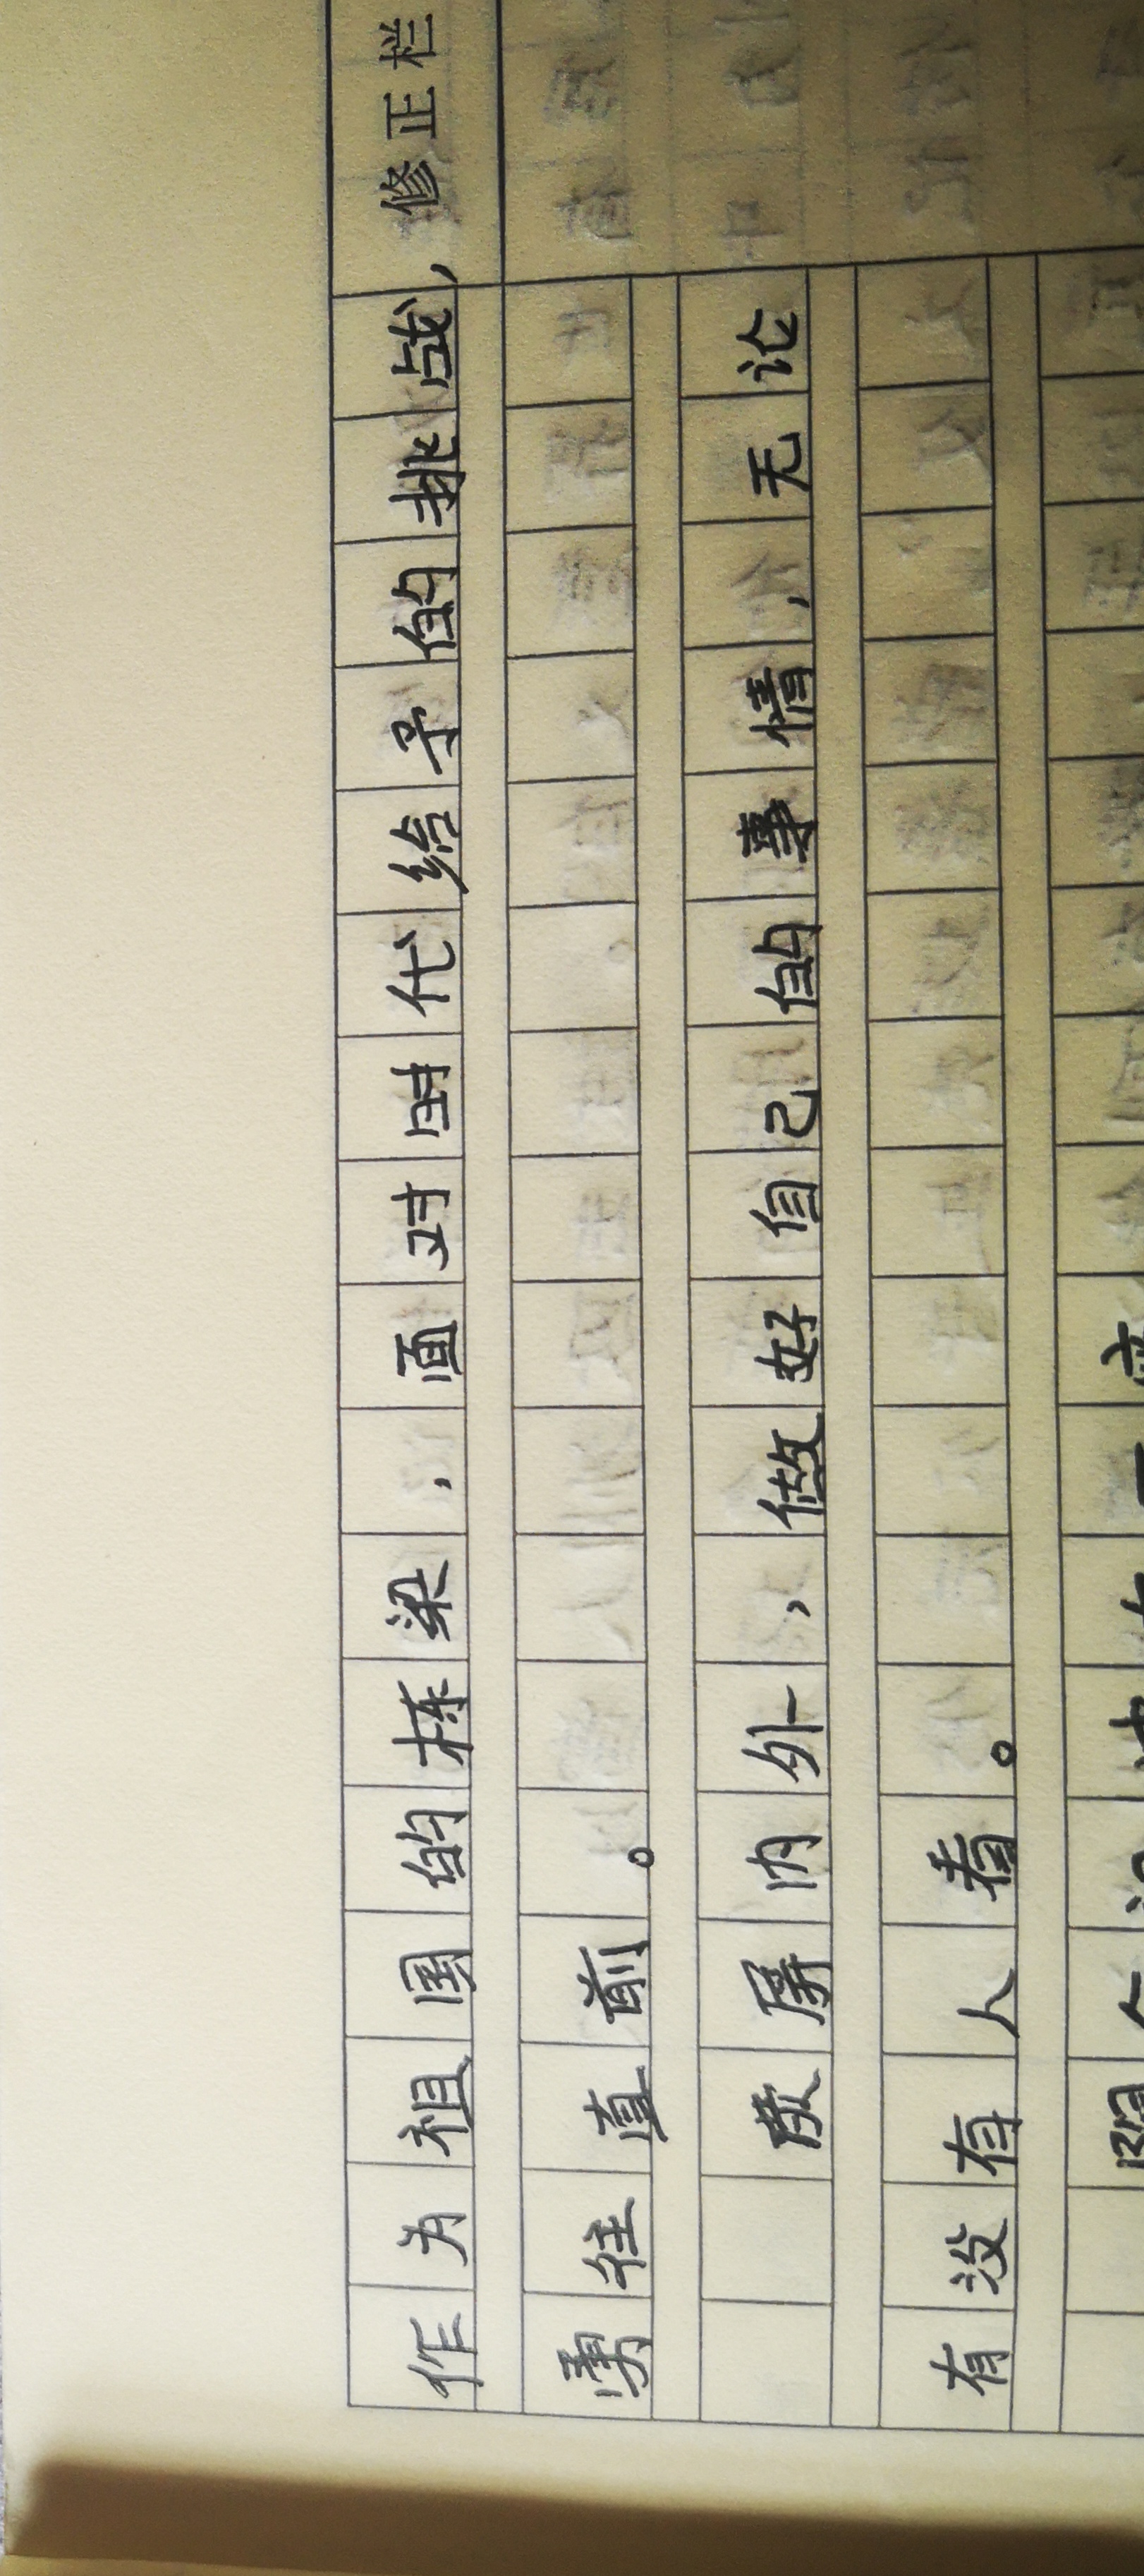 作为祖国的栋梁，面对时代给予的挑战， 修正栏
勇往直前。
放屏内外，做好自己的事情，无论
有没有人看。